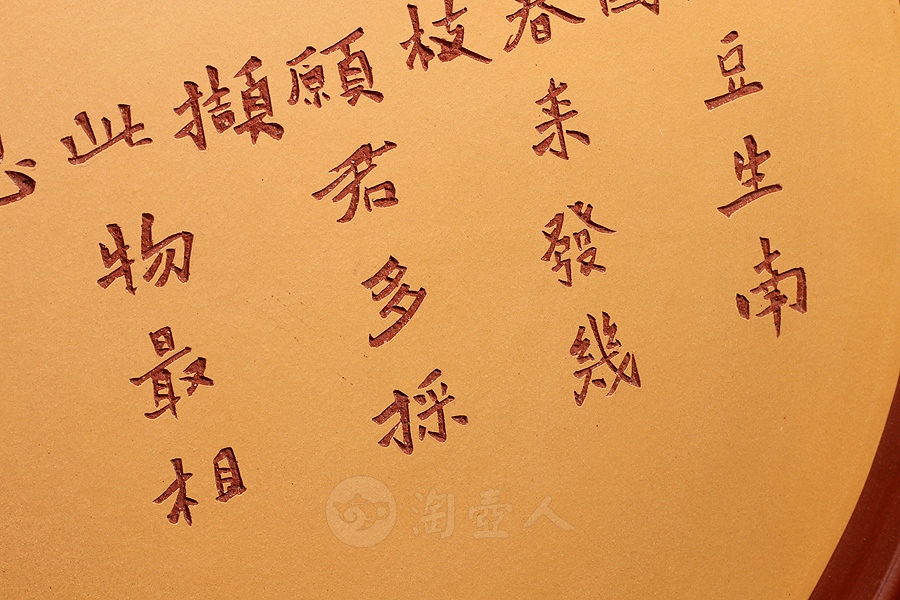 豆生南
春来發幾
枝
願君多採
擷
此物最相
淘壺人